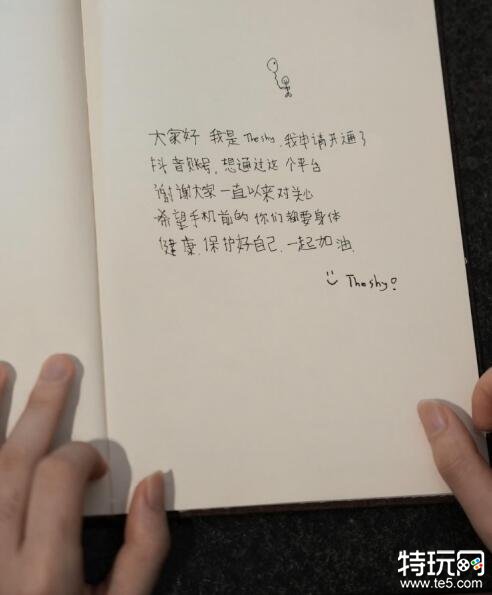 大家好 我是 Theshy. 我申请开通了
抖音账号, 想通过这个平台
谢谢大家一直以来对关心
希望手机前的你们都要身体
健康. 保护好自己. 一起加油.
Theshy!
特玩网
www.te5.com